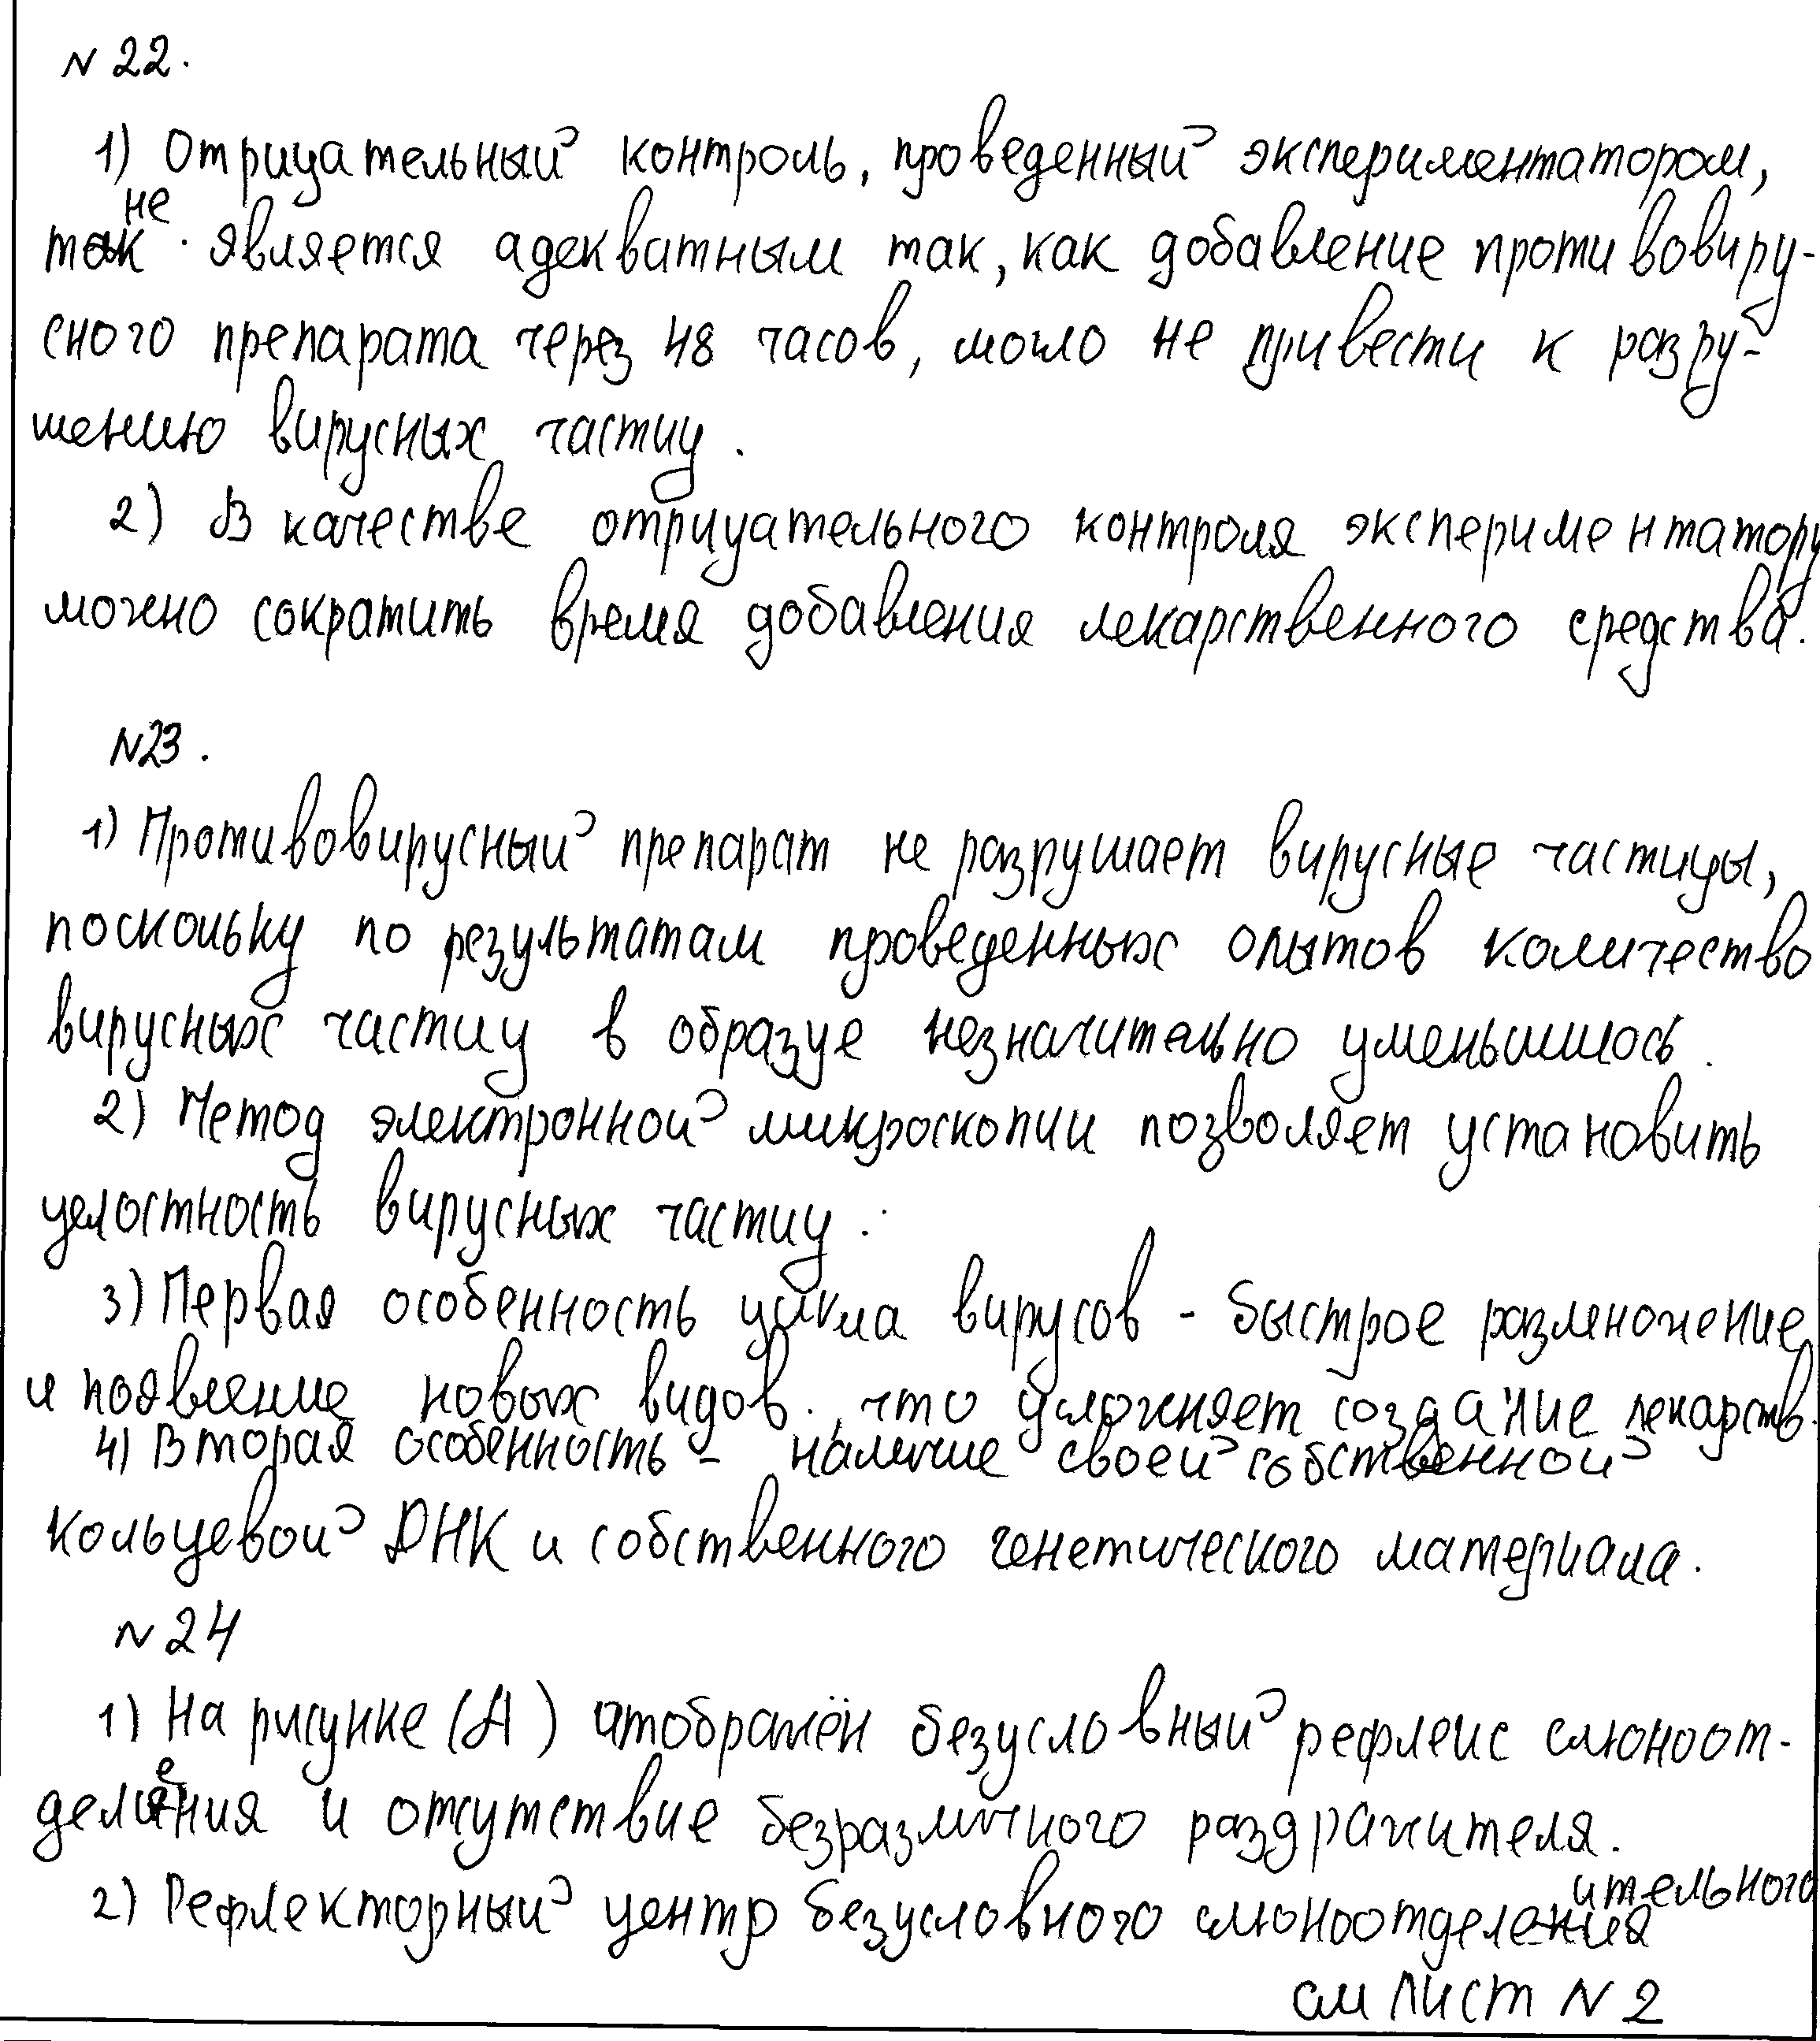 N 22.
1) Отрицательный контроль, проведенный экспериментатором,
не является адекватным так, как добавление противовиру-
сного препарата через 48 часов, могло не привести к разру-
шению вирусных частиц.
2) В качестве отрицательного контроля экспериментатору
можно сократить время добавления лекарственного средства.
N23.
1) Противовирусный препарат не разрушает вирусные частицы,
поскольку по результатам проведенных опытов количество
вирусных частиц в образце незначительно уменьшилось.
2) Метод электронной микроскопии позволяет установить
целостность вирусных частиц.
3) Первая особенность цикла вирусов - быстрое размножение
и появление новых видов, что усложняет создание лекарств.
4) Вторая особенность - наличие своей собственной
кольцевой ДНК и собственного генетического материала.
N 24
1) На рисунке (А) отображён безусловный рефлекс слюноот-
деления и отсутствие безразличного раздражителя.
2) Рефлекторный центр безусловного слюноотделительного
см лист N 2